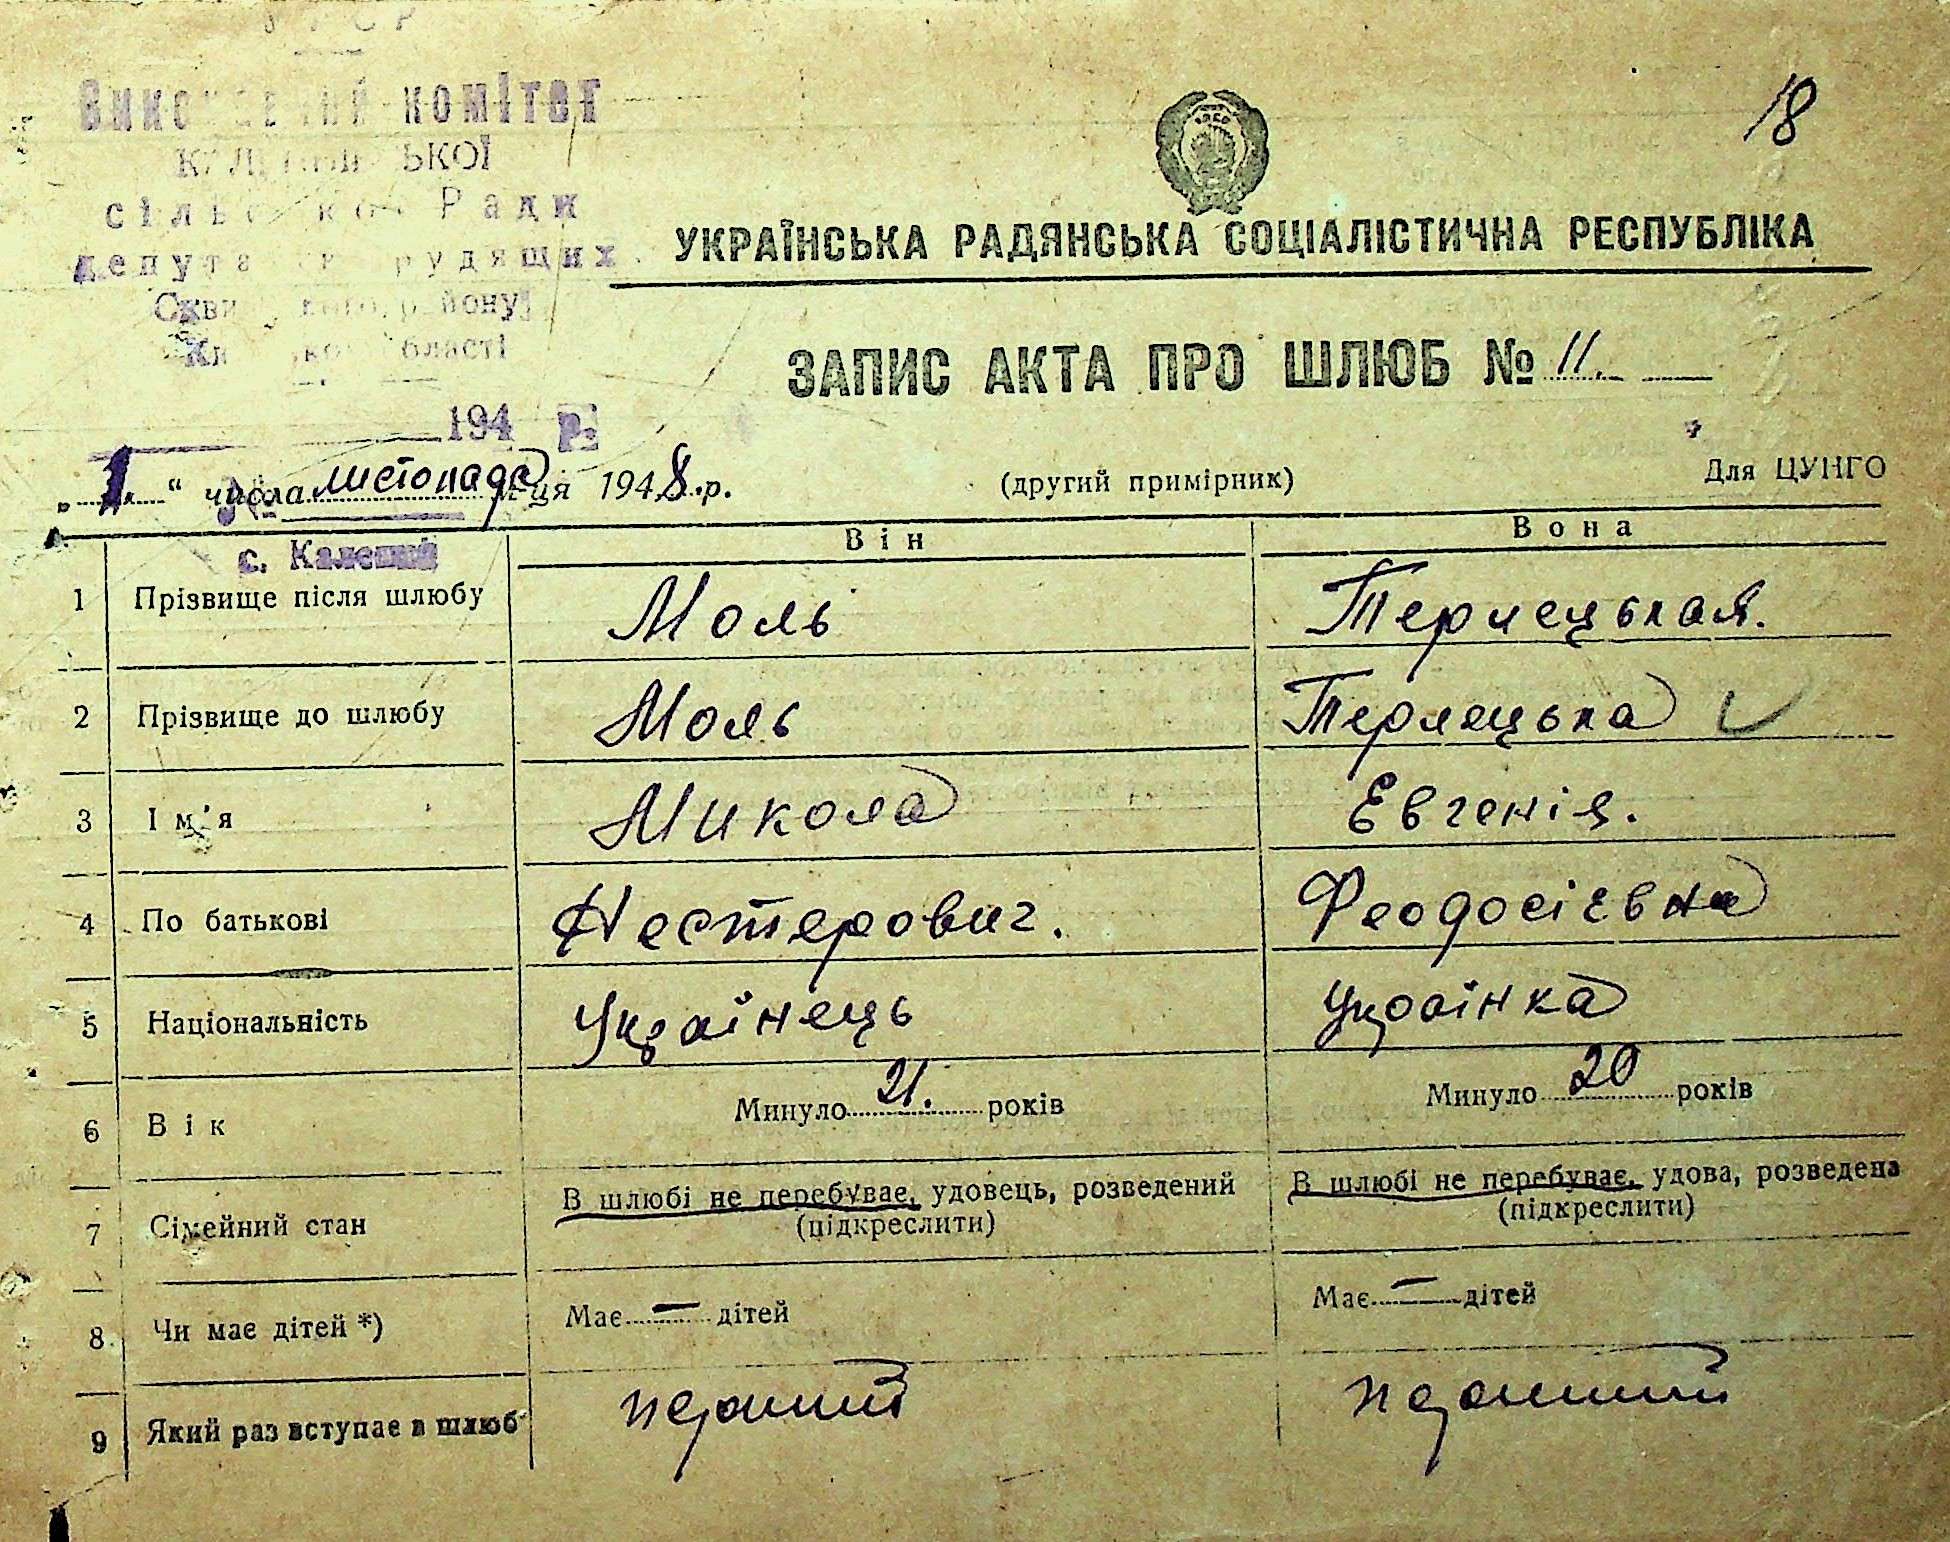 18
комітет
Ради
194 р.
УКРАЇНСЬКА РАДЯНСЬКА СОЦІАЛІСТИЧНА РЕСПУБЛІКА
ЗАПИС АКТА ПРО ШЛЮБ № 11.
„1“ числа листопада м-ця 1948 р.
(другий примірник)
Для ЦУНГО
Він Вона
1 Прізвище після шлюбу Моль Терлецькая.
2 Прізвище до шлюбу Моль Терлецька
3 Ім'я Микола Евгенія.
4 По батькові Нестерович. Феодосіевна
5 Національність Українець Украінка
6 Вік Минуло 21. років Минуло 20 років
7 Сімейний стан В шлюбі не перебуває, удовець, розведений В шлюбі не перебуває, удова, розведена
(підкреслити) (підкреслити)
8 Чи має дітей *) Має — дітей Має — дітей
9 Який раз вступає в шлюб перший перший